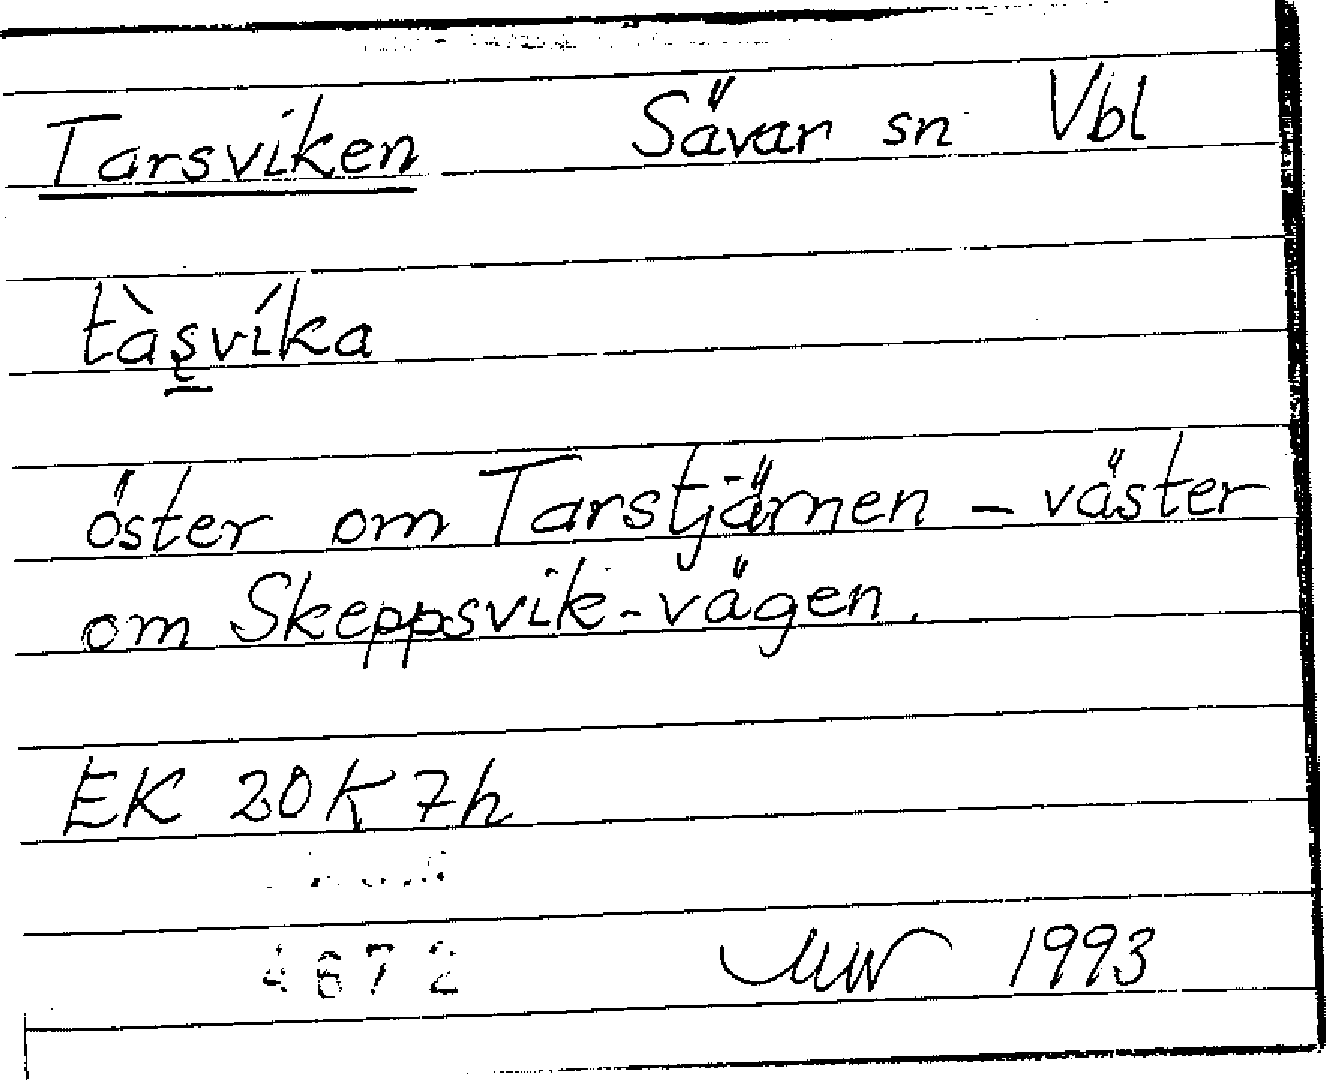 Tarsviken Sävar sn Vbl
tàs̨víka
öster om Tarstjärnen – väster
om Skeppsvik-vägen.
EK 20K 7h
4672 1993